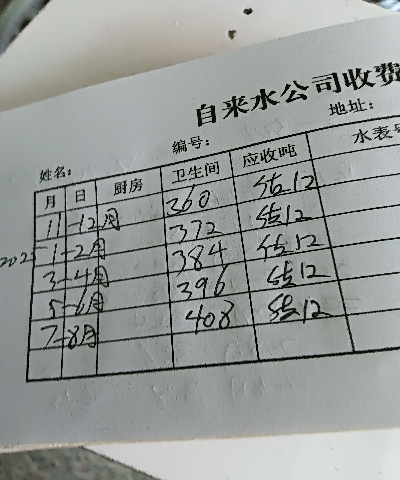 自来水公司收费
编号: 地址:
姓名:
月 日 厨房 卫生间 应收吨 水表号
11-12月 360 估12
2025 1-2月 372 估12
3-4月 384 估12
5-6月 396 估12
7-8月 408 估12